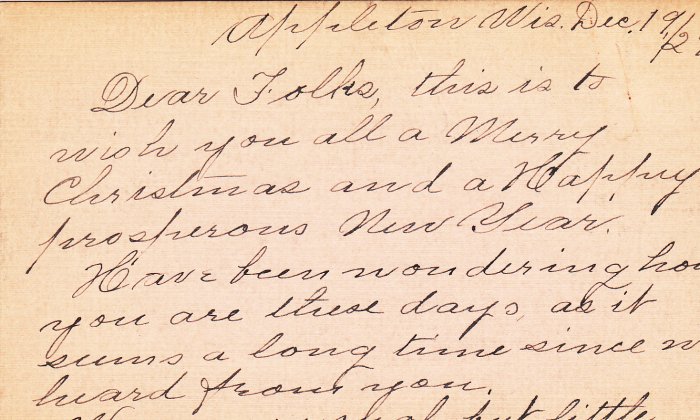 Appleton Wis. Dec. 19/2
Dear Folks, this is to
wish you all a Merry
Christmas and a Happy
prosperous New Year.
Have been wondering how
you are these days, as it
seems a long time since
heard from you.
but little